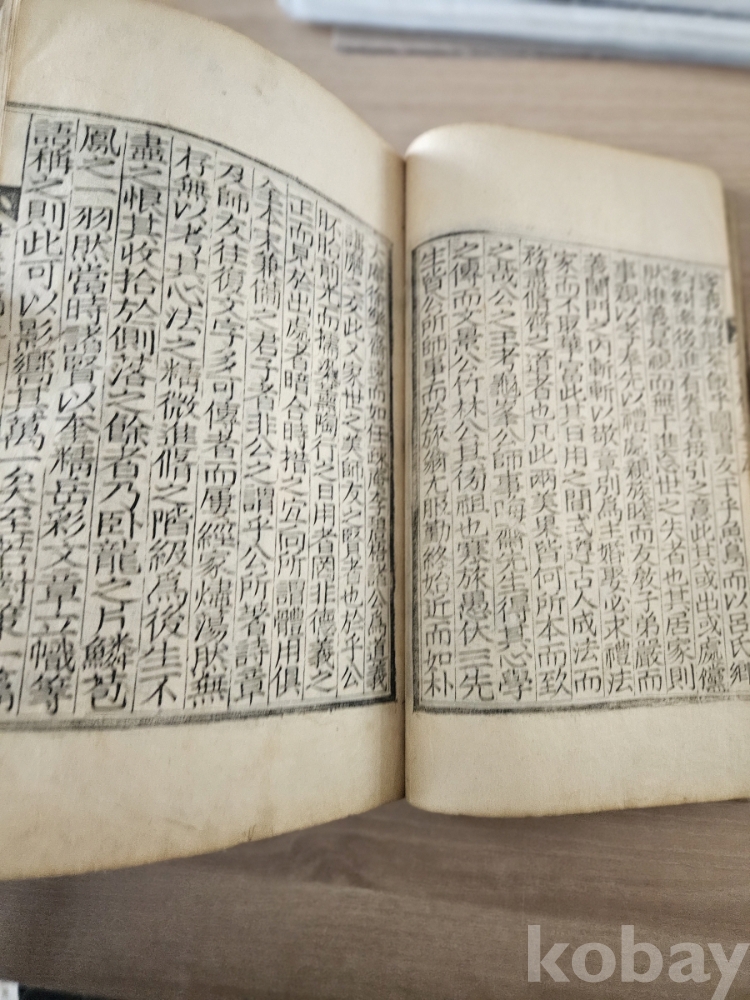 女子于矞焉而以呂氏鄕
約糾率後進有眷眷接引之意此其或出或處儻
然惟義是視而無干進逃世之失者也其居家則
事親以孝奉先以禮處親族睦而友敎子弟嚴而
義閨門之內斬斬以敬章別爲主婚娶必求禮法
家而不取華富此其日用之間式遵古人成法而
務盡脩齊之道者也凡此兩美果皆何所本而致
之哉公之王考 峯公師事晦 先生得其心學
之傳而文景公竹林公其傍祖也寒旅愚伏三先
生皆公所師事而於旅翁尤服勤終始近而如朴
 齋而如任踈庵李 諸公爲道義
 磨之友此文家世之美師友之賢者也於乎公
 前光而擩染薰陶行之日用者罔非德義之
正而見於出處者暗合時措之宜向所謂體用俱
全本末兼備之君子者非公之謂乎公所著詩章
及師友往復文字多可傳者而屢經家燼蕩然無
存無以考其心法之精微進脩之階級爲後生不
盡之恨其收拾於劍落之餘者乃臥龍之片鱗苞
鳳之一羽然當時諸賢以奎精岳彩文章立幟等
語稱之則此可以影響其萬一矣至若對策一篇
kobay